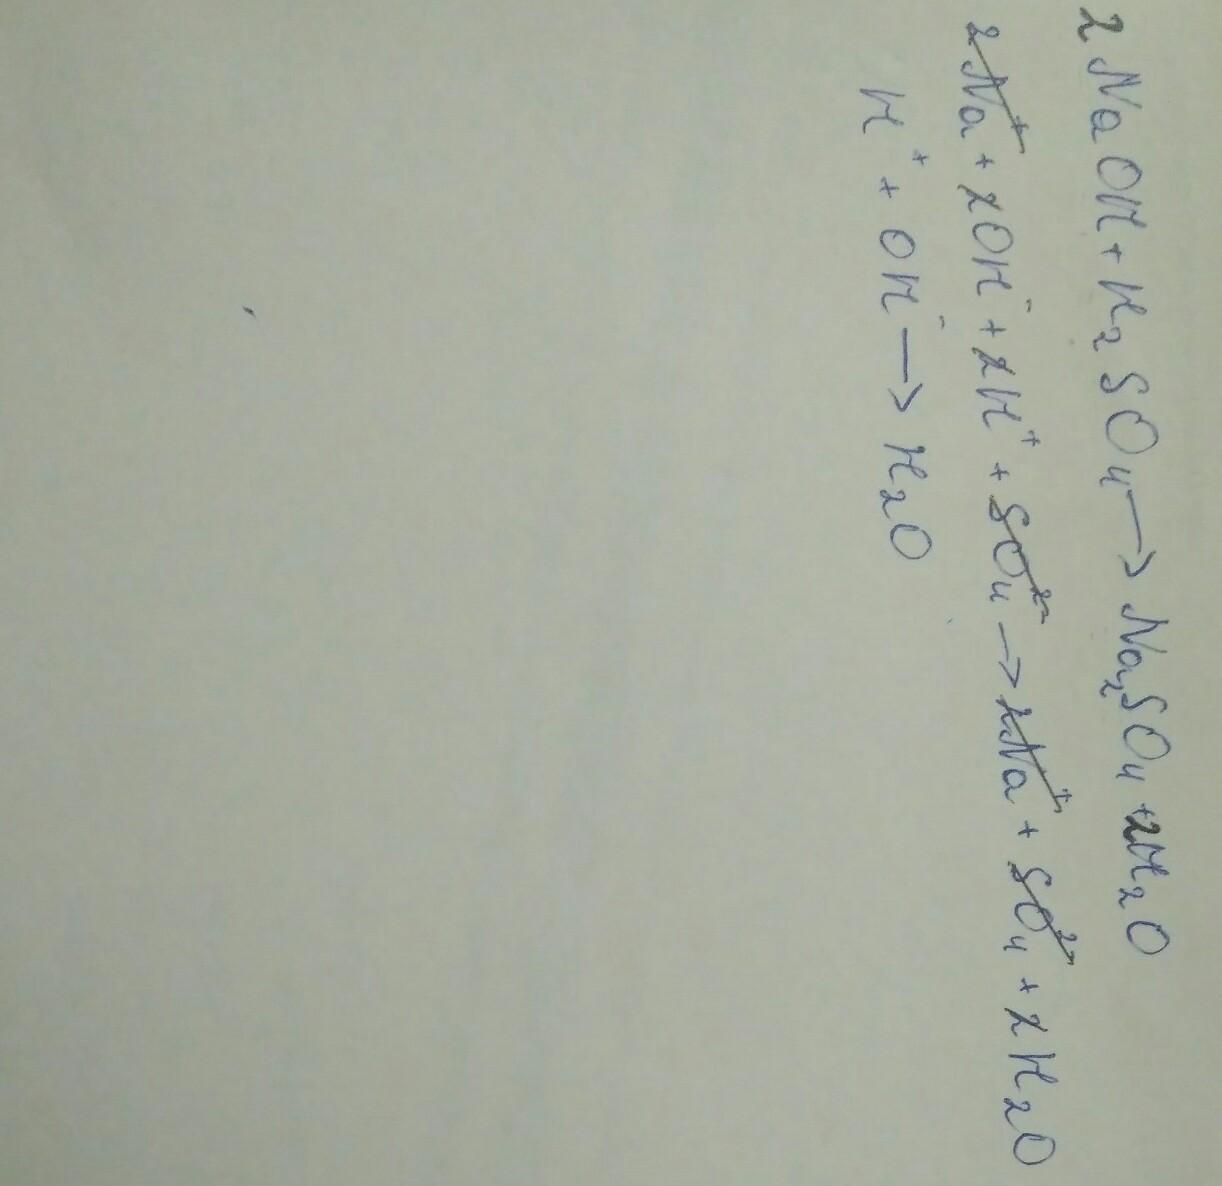 2NaOH + H₂SO₄ → Na₂SO₄ + 2H₂O
2Na⁺ + 2OH⁻ + 2H⁺ + SO₄²⁻ → 2Na⁺ + SO₄²⁻ + 2H₂O
H⁺ + OH⁻ → H₂O